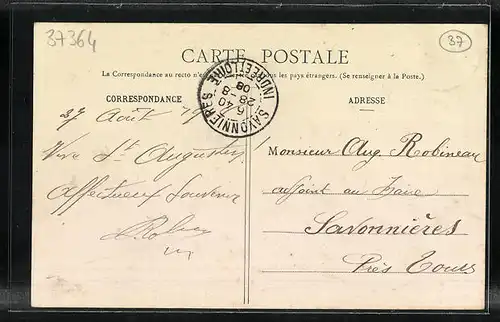 37364
37
CARTE POSTALE
La Correspondance au recto n'e les pays étrangers. (Se renseigner à la Poste.)
SAVONNIERES
INDRE-ET-LOIRE
6 40
28 - 8
08
CORRESPONDANCE
ADRESSE
27 Août
Vive St Augustin!
Affectueux Souvenir
Monsieur Aug. Robineau
adjoint au Maire
Savonnières
Près Tours